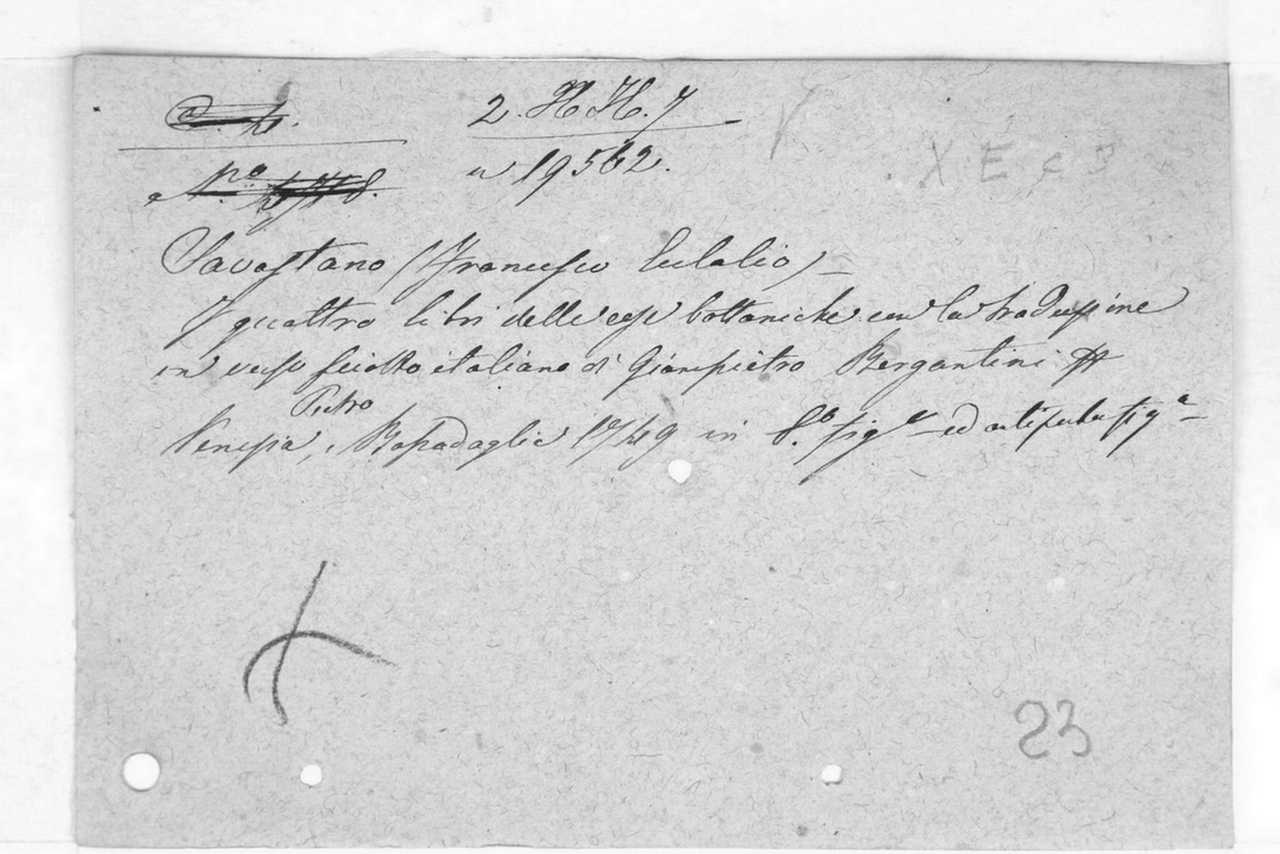 2. H H. 7
n 19562.
X E c 3
Savastano (Francesco Eulalio)
I quattro libri delle cose bottaniche con la traduzione
in verso sciolto italiano di Giampietro Bergantini
Pietro
Venezia, Bassadaglia 1749 in 8.º fig.ª ed antiporta fig.ª
23